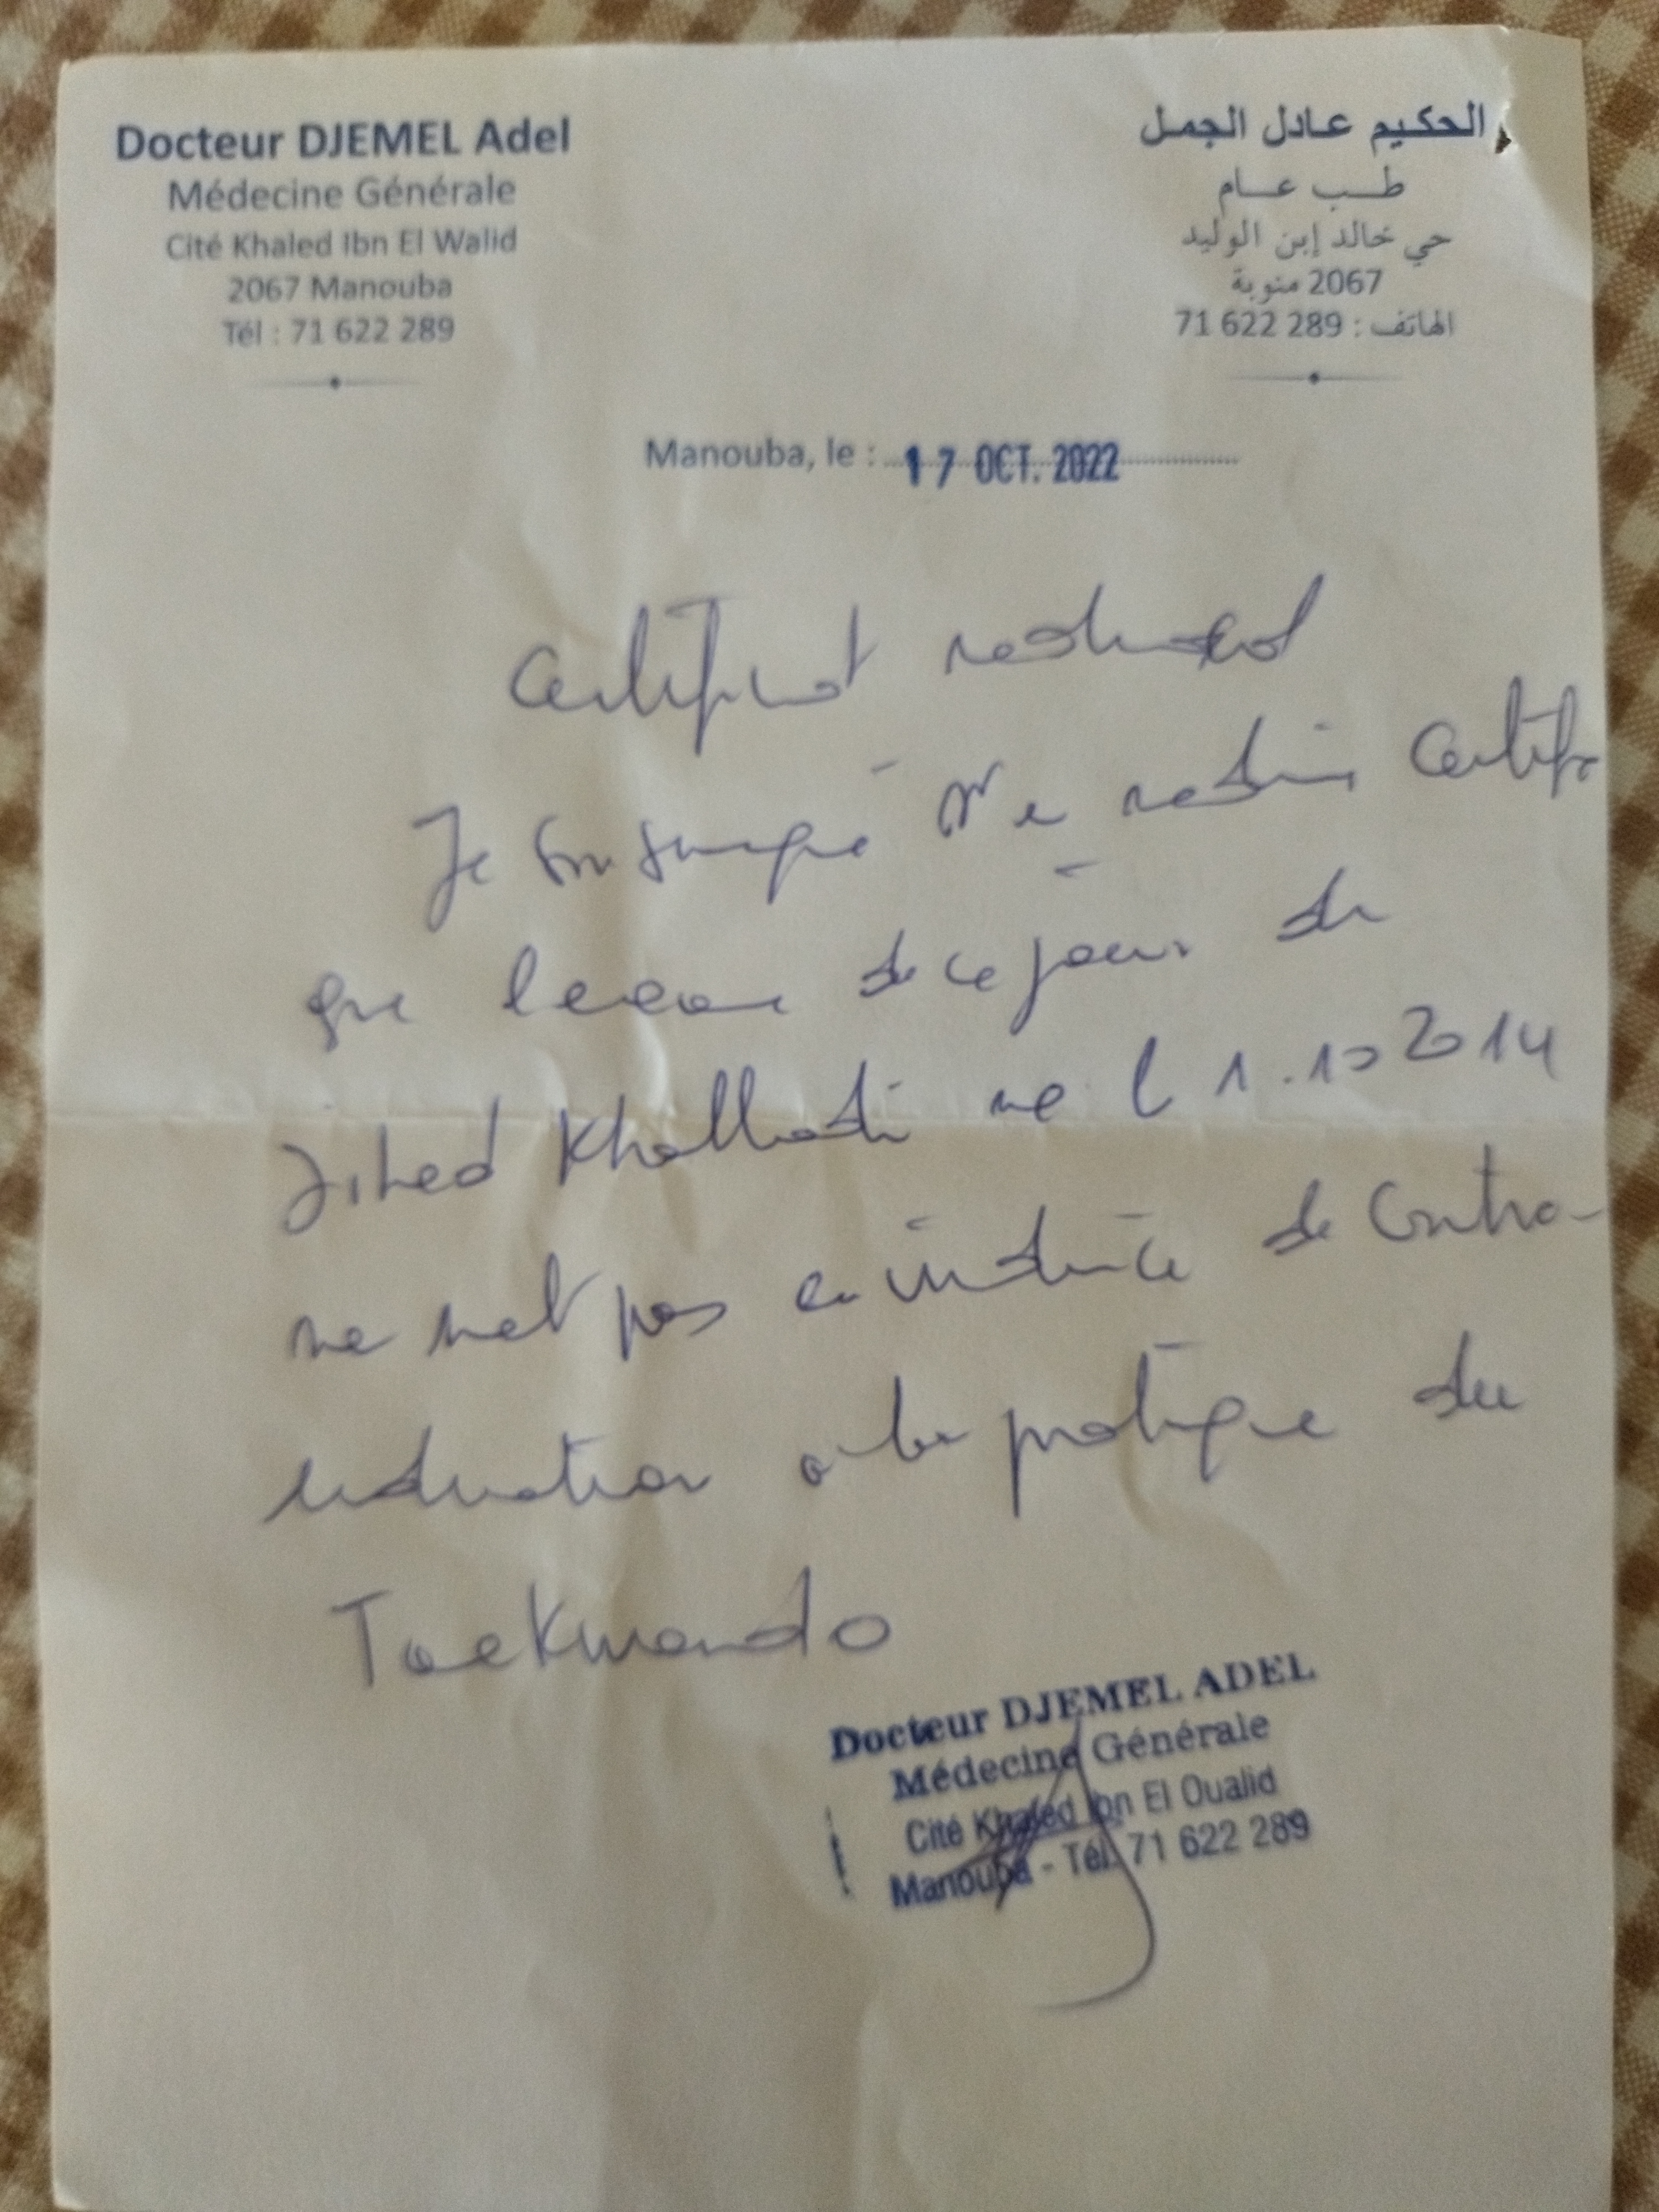 Docteur DJEMEL Adel
Médecine Générale
Cité Khaled Ibn El Walid
2067 Manouba
Tél : 71 622 289
الحكيم عادل الجمل
طب عام
حي خالد إبن الوليد
2067 منوبة
الهاتف : 71 622 289
Manouba, le : 17 OCT. 2022
Certificat medical
Je soussigné Dr en medecine certifie
que l'examen de ce jour de
Jihed Khalladi ne le 1.10 2014
ne met pas en évidence de contra-
indication a la pratique du
Taekwondo
Docteur DJEMEL ADEL
Médecine Générale
Cité Khaled Ibn El Oualid
Manouba - Tél. 71 622 289